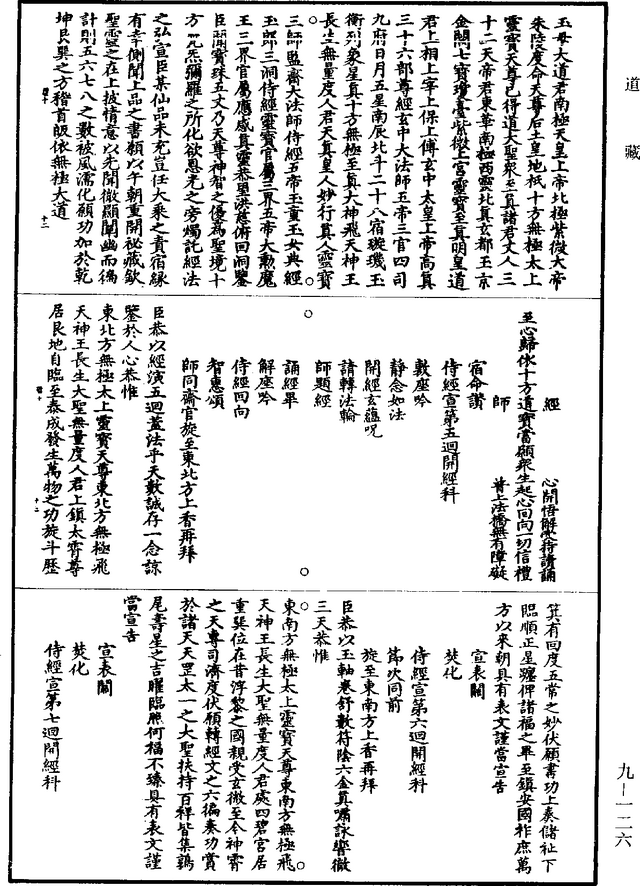 道藏
玉母大道君南極天皇上帝北極紫微大帝
朱陵度命天尊后土皇地祇十方無極太上
靈寶天尊已得道大聖眾至真諸君丈人三
十二天帝君東華南極西靈北真玄都玉京
金闕七寶瓊臺紫微上宮靈寶至真明皇道
君上相上宰上保上傅玄中太皇上帝高真
三十六部尊經玄中大法師五帝三官四司
九府日月五星南辰北斗二十八宿璇璣玉
衡列象星真十方無極至真大神飛天神王
長生無量度人君天真皇人妙行真人靈寶
三師監齋大法師侍經五帝玉童玉女典經
玉郎三洞侍經靈寶官屬三界五帝大勳魔
王三界官屬應感真靈恭望洪慈俯回洞鑒
臣聞寶珠五文乃天尊神智之優為聖境十
方 炁彌羅之所化欲思光之旁燭託經法
之弘宣臣某仙品未充豈任大乘之責宿緣
有幸側聞上品之書願以午朝重開祕藏欽
聖靈之在上披情意以先開徹顯闡幽而徧
計則五六七八之數被風濡化願功加於乾
坤艮巽之方稽首皈依無極大道
經
心開悟解受持讀誦
至心歸依十方道寶當願眾生起心回向一切信禮
師
普上法橋無有障礙
宿命讚
侍經宣第五迴開經科
數座吟
靜念如法
開經玄蘊呪
請轉法輪
師題經
誦經畢
解座吟
侍經回向
智惠頌
師同齋官旋至東北方上香再拜
臣恭以經演五迴蓋法乎天數誠存一念諒
鑒於人心恭惟
東北方無極太上靈寶天尊東北方無極飛
天神王長生大聖無量度人君上鎮太霄尊
居艮地自臨至泰成發生萬物之功旋斗歷
箕有回度五常之妙伏願書功上奏儲祉下
臨順正星躔俾諸福之畢至鎮安國祚庶萬
方以來朝具有表文謹當宣告
宣表闕
焚化
侍經宣第六迴開經科
節次同前
旋至東南方上香再拜
臣恭以玉軸卷舒數符陰六金真嘯詠響徹
三天恭惟
東南方無極太上靈寶天尊東南方無極飛
天神王長生大聖無量度人君處四碧宮居
重巽位在昔浮黎之國親受玄微至今神霄
之天尊司濟度伏願轉經文之六徧奏功賞
於諸天天罡太一之大聖扶持百祥皆集鶉
尾壽星之吉曜臨照何福不臻具有表文謹
當宣告
宣表闕
焚化
侍經宣第七迴開經科
九－一二六